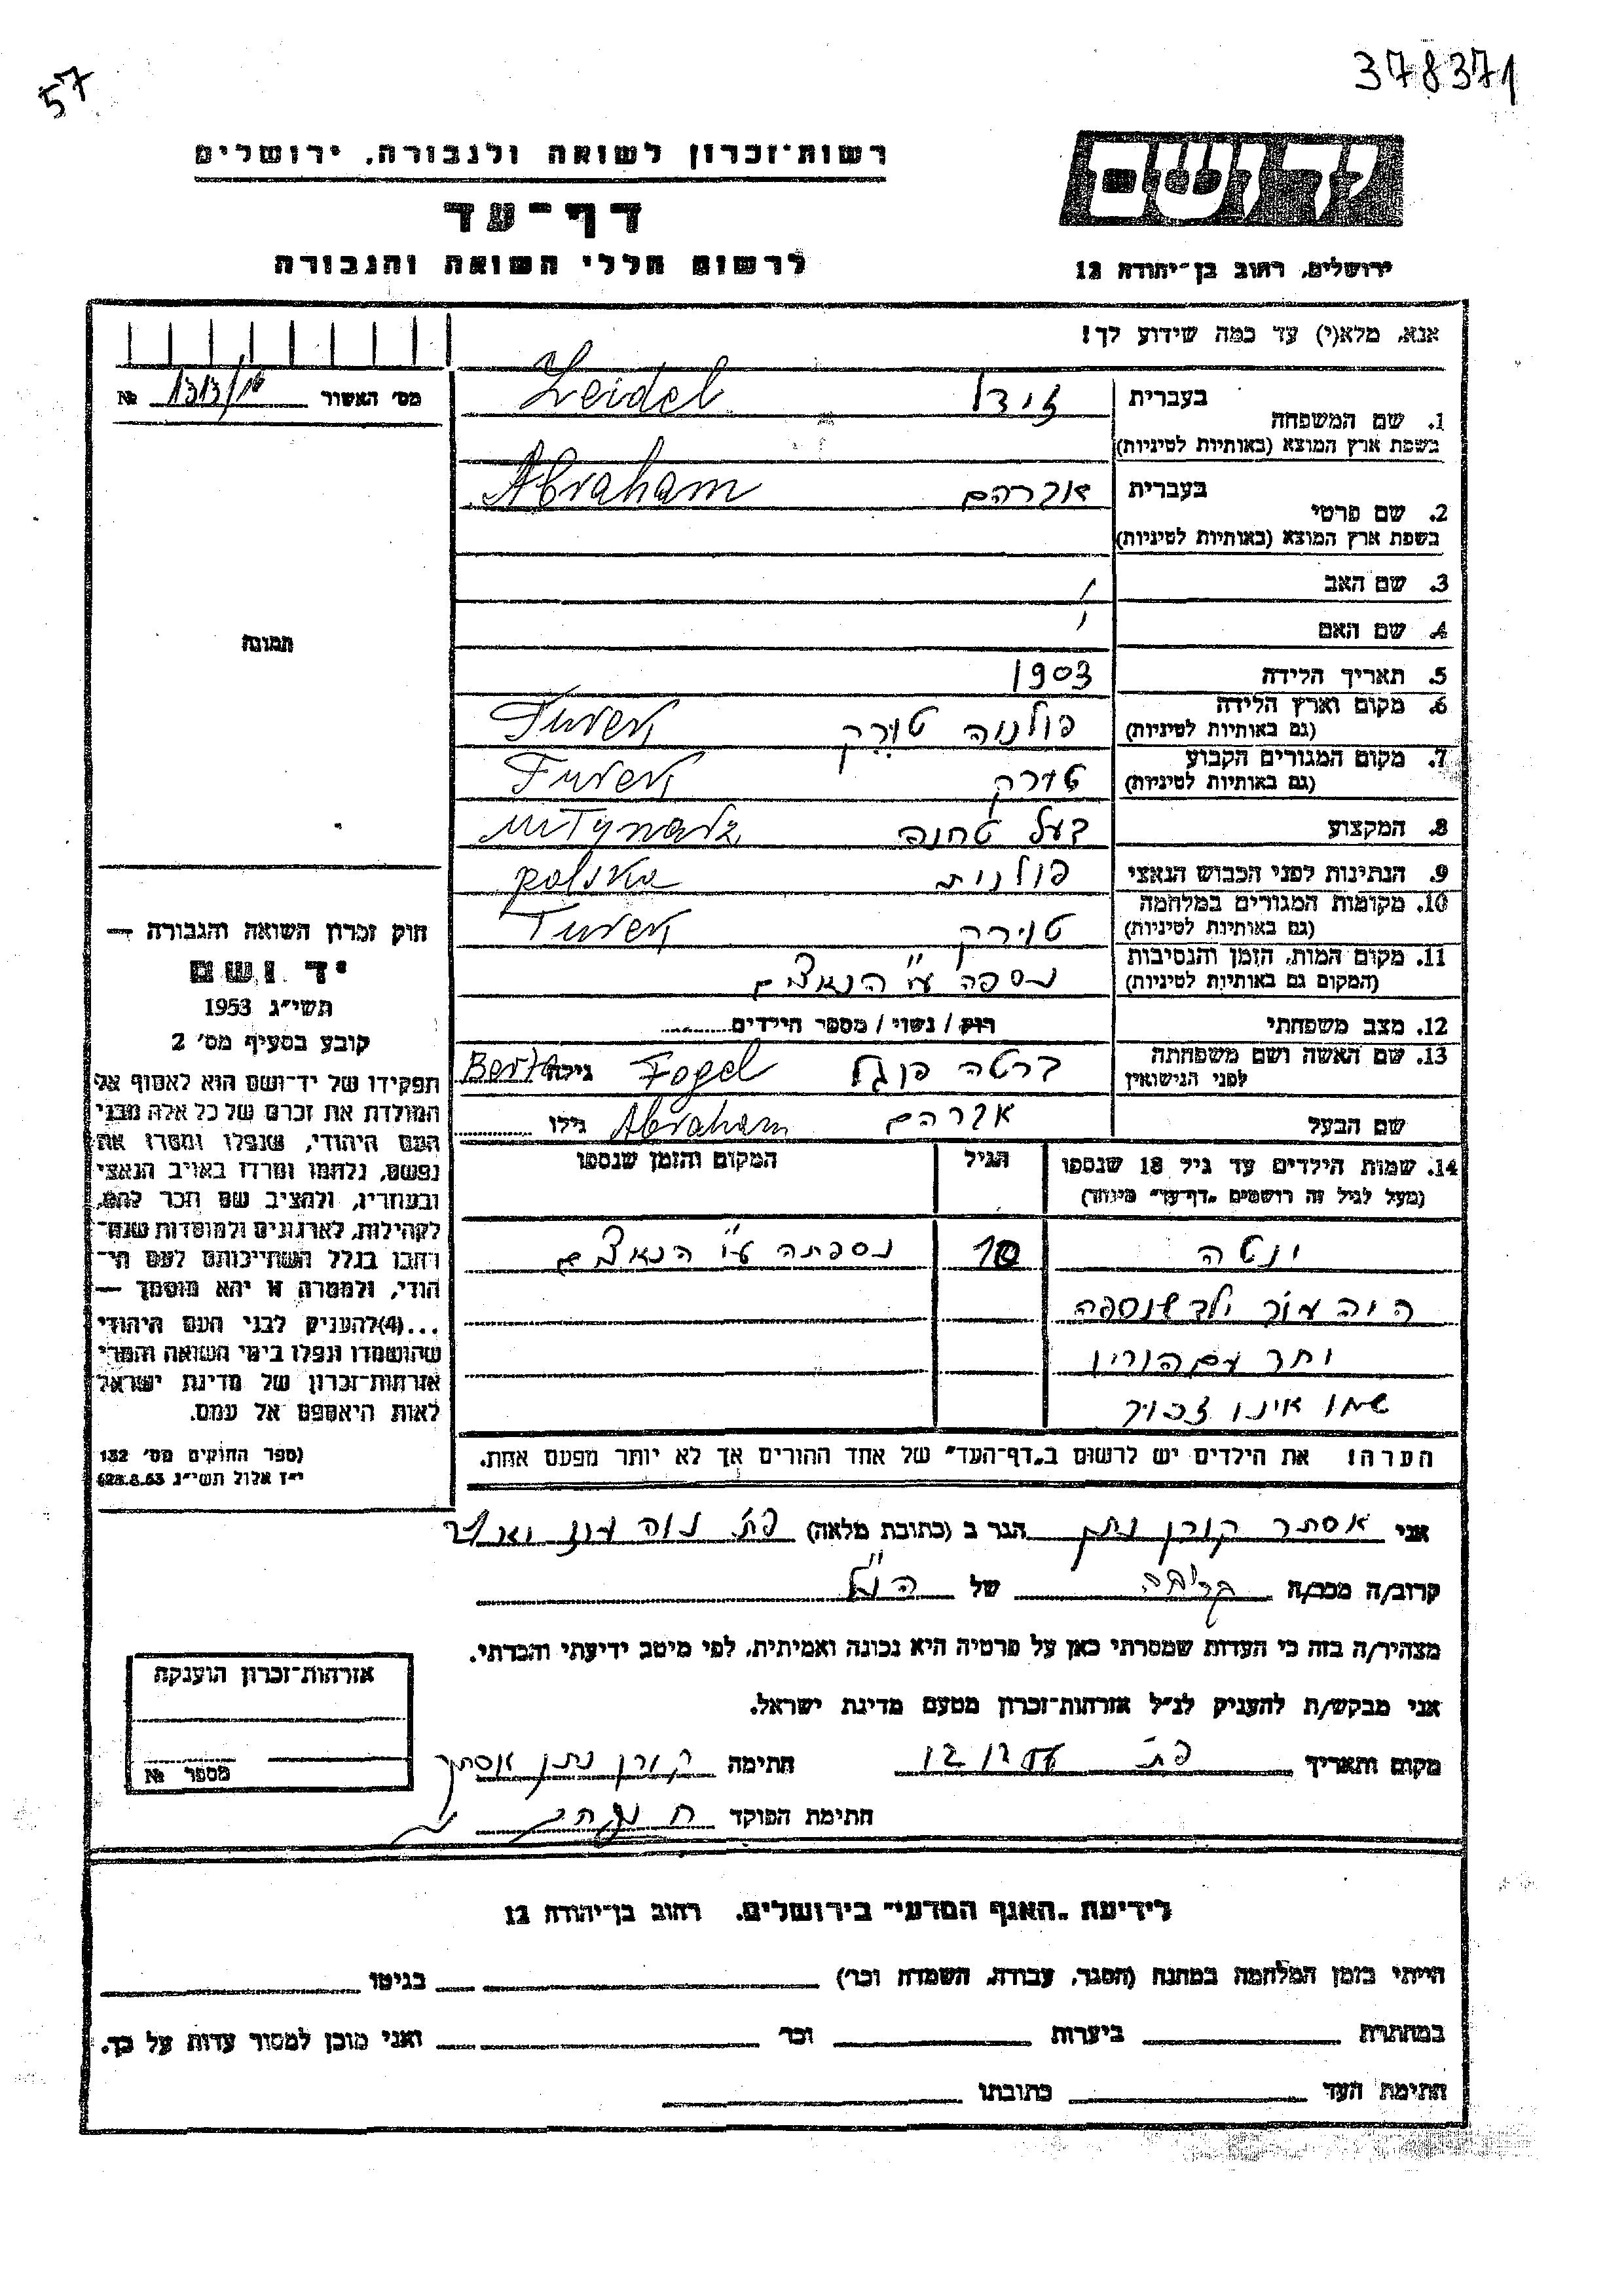 57
378371
רשות־זכרון לשואה ולגבורה, ירושלים
דף־עד
לרשום חללי השואה והגבורה
יד ושם
ירושלים, רחוב בן־יהודה 12
אנא, מלא(י) עד כמה שידוע לך!
מס׳ האשור № 1313/
1. שם המשפחה
בעברית זידל Zeidel
בשפת ארץ המוצא (באותיות לטיניות)
2. שם פרטי
בעברית אברהם Abraham
בשפת ארץ המוצא (באותיות לטיניות)
3. שם האב
4. שם האם
5. תאריך הלידה 1903
6. מקום וארץ הלידה פולניה טורק Turek
(גם באותיות לטיניות)
7. מקום המגורים הקבוע טורק Turek
(גם באותיות לטיניות)
8. המקצוע בעל טחנה
9. הנתינות לפני הכבוש הנאצי פולנית polska
10. מקומות המגורים במלחמה טורק Turek
(גם באותיות לטיניות)
11. מקום המות, הזמן והנסיבות נספה ע״י הנאצים
(המקום גם באותיות לטיניות)
12. מצב משפחתי רוק / נשוי / מספר הילדים
13. שם האשה ושם משפחתה ברטה פוגל Fogel גילה Berta
לפני הנישואין
שם הבעל אברהם Abraham גילו
14. שמות הילדים עד גיל 18 שנספו הגיל המקום והזמן שנספו
(מעל לגיל זה רושמים „דף־עד״ מיוחד)
ינטה 10 נספתה ע״י הנאצים
היה עוד ילד שנספה
יחד עם הוריו
שמו אינו זכור
הערה: את הילדים יש לרשום ב„דף־העד״ של אחד ההורים אך לא יותר מפעם אחת.
תמונה
חוק זכרון השואה והגבורה —
יד ושם
תשי״ג 1953
קובע בסעיף מס׳ 2
תפקידו של יד־ושם הוא לאסוף אל
המולדת את זכרם של כל אלה מבני
העם היהודי, שנפלו ומסרו את
נפשם, נלחמו ומרדו באויב הנאצי
ובעוזריו, ולהציב שם וזכר להם,
לקהילות, לארגונים ולמוסדות שנח־
רבו בגלל השתייכותם לעם הי־
הודי, ולמטרה זו יהא מוסמך —
...(4)להעניק לבני העם היהודי
שהושמדו ונפלו בימי השואה והמרי
אזרחות־זכרון של מדינת ישראל
לאות היאספם אל עמם.
(ספר החוקים מס׳ 132
י״ז אלול תשי״ג 28.8.53)
אני אסתר קורן נתן הגר ב (כתובת מלאה) פ״ת נוה עוז
קרוב/ה מכר/ה קרובה של הנ״ל
מצהיר/ה בזה כי העדות שמסרתי כאן על פרטיה היא נכונה ואמיתית, לפי מיטב ידיעתי והכרתי.
אני מבקש/ת להעניק לנ״ל אזרחות־זכרון מטעם מדינת ישראל.
מקום ותאריך פ״ת חתימה קורן נתן אסתר
חתימת הפוקד
אזרחות־זכרון הוענקה
מספר №
לידיעת „האגף המדעי״ בירושלים, רחוב בן־יהודה 12
הייתי בזמן המלחמה במחנה (הסגר, עבודה, השמדה וכר׳) בגיטו
במחתרת ביערות וכר׳ ואני מוכן למסור עדות על כך.
חתימת העד כתובתו